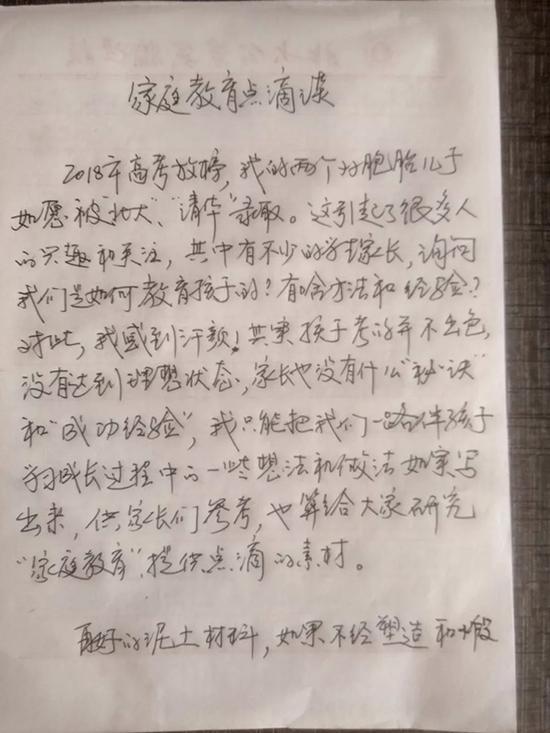 家庭教育点滴谈
2018年高考放榜，我的两个双胞胎儿子
如愿被"北大"、"清华"录取。这引起了很多人
的兴趣和关注，其中有不少的学生家长，询问
我们是如何教育孩子的？有啥办法和经验？
对此，我感到汗颜！其实孩子考的并不出色，
没有达到理想状态，家长也没有什么"秘诀"
和"成功经验"，我只能把我们一路伴孩子
学习成长过程中的一些想法和做法如实写
出来，供家长们参考，也算给大家研究
"家庭教育"提供点滴的素材。
再好的泥土材料，如果不经塑造和煅